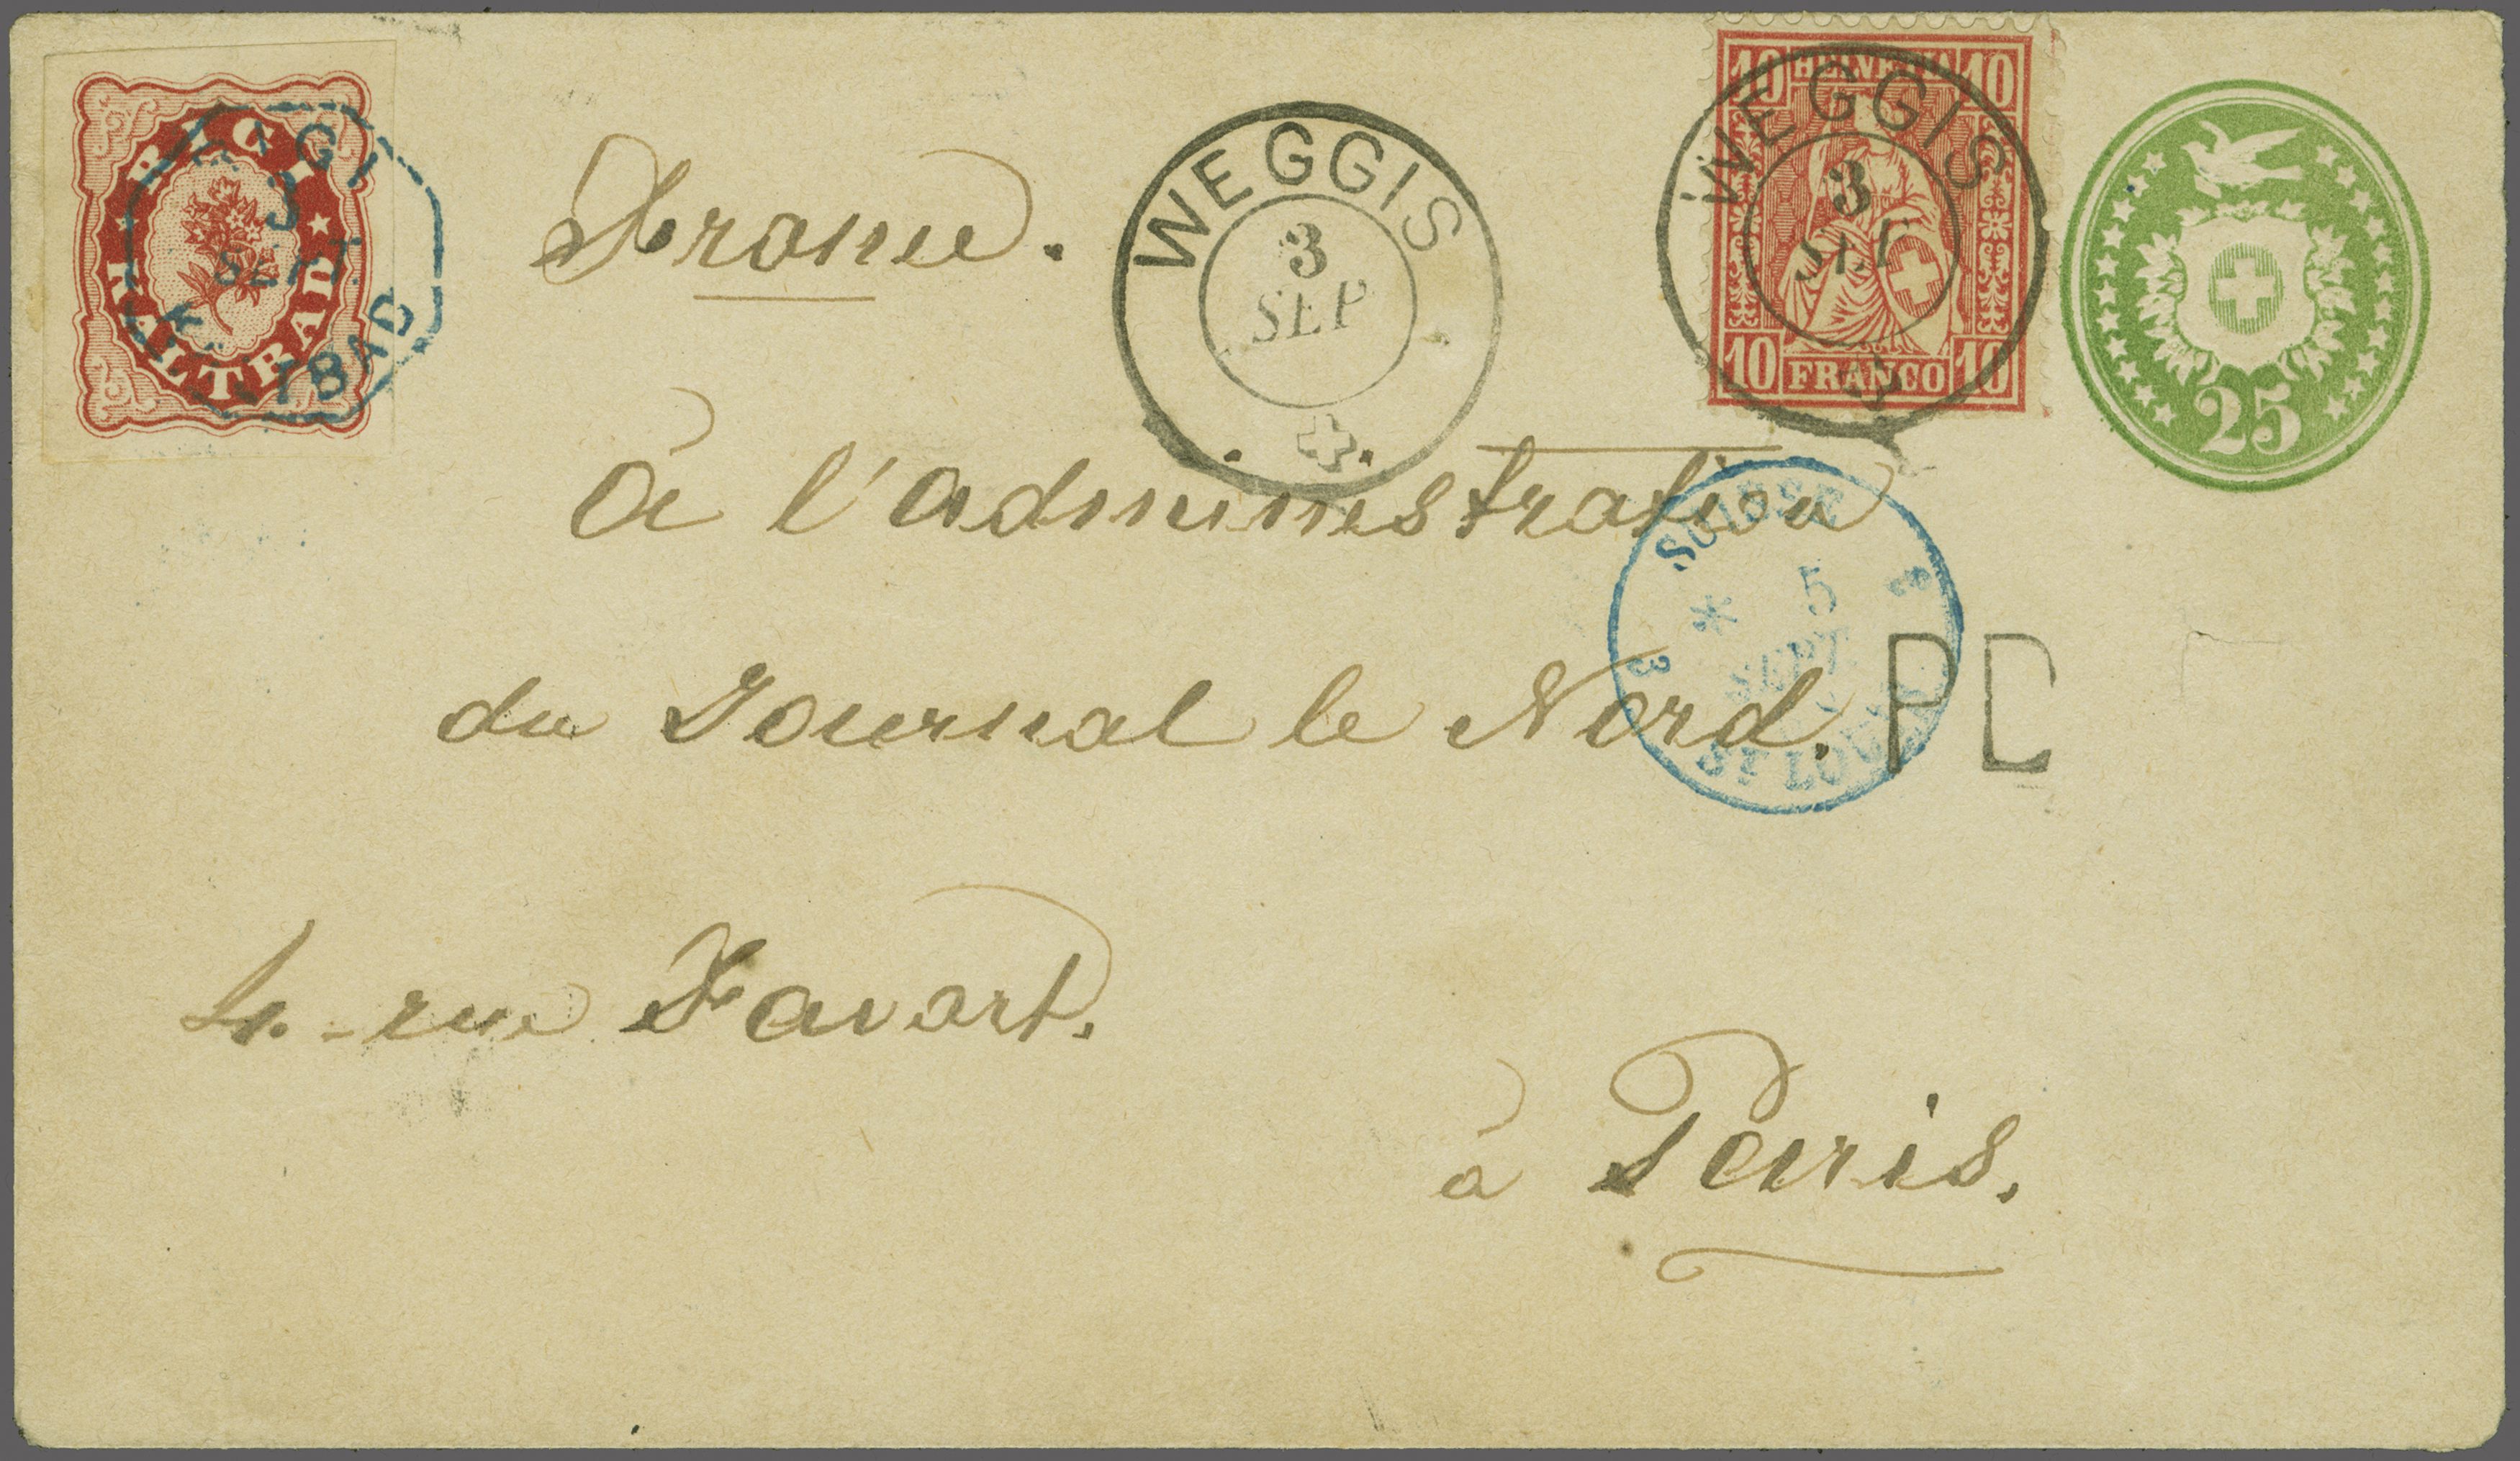 RIGI
KALTBAD
RIGI
3
SEPT.
K TBAD
WEGGIS
3
SEP
10 HELVETIA 10
10 FRANCO 10
WEGGIS
3
SEP
25
France.
à l'administration
du Journal le Nord.
SUISSE
5
SEPT.
3
ST LOUIS
PD
4. rue Favart.
à Paris.